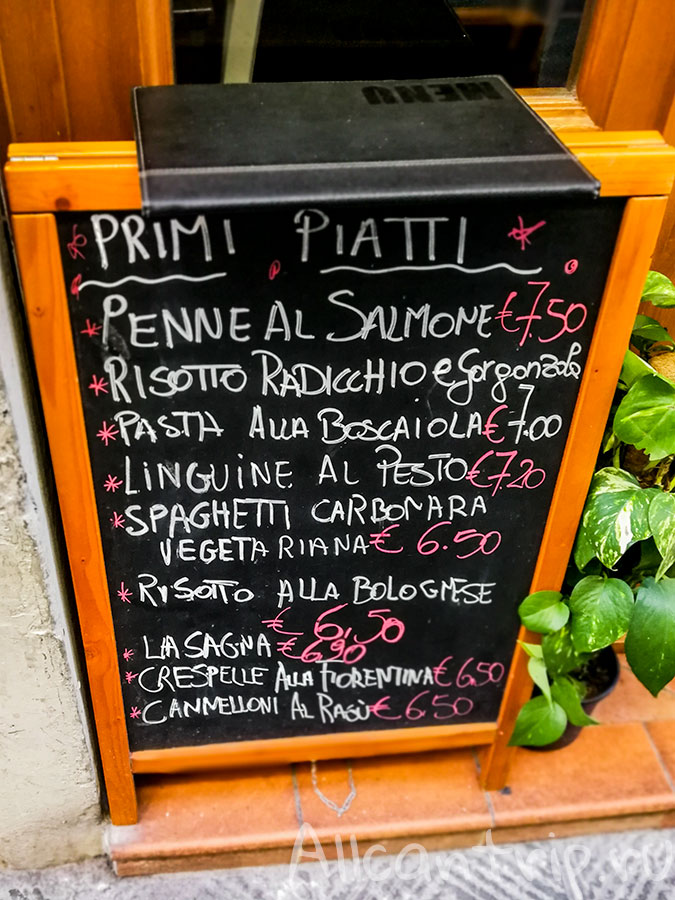 MENU
PRIMI PIATTI
PENNE AL SALMONE €7.50
RISOTTO RADICCHIO e Gorgonzola
PASTA ALLA BOSCAIOLA € 7.00
LINGUINE AL PESTO €7.20
SPAGHETTI CARBONARA
VEGETARIANA € 6.50
RISOTTO ALLA BOLOGNESE
€ 6,50
LASAGNA € 6.90
CRESPELLE ALLA FIORENTINA € 6.50
CANNELLONI AL RAGÙ € 6.50
Allcantrip.ru